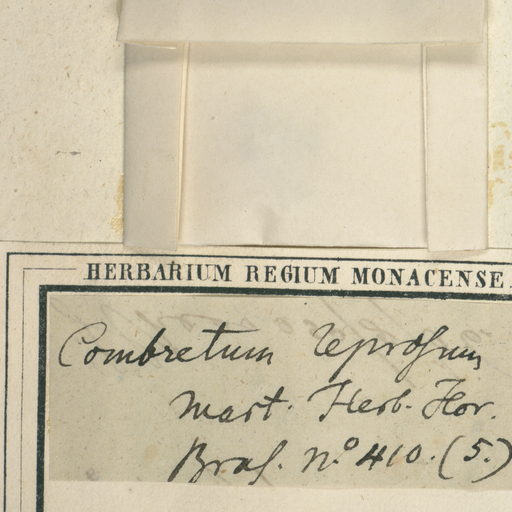 HERBARIUM REGIUM MONACENSE.
Combretum leprosum
Mart. Herb. Flor.
Bras. nº 410. (5.)